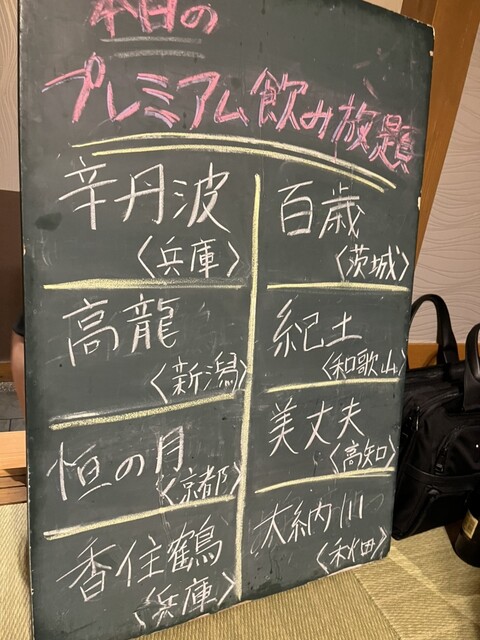 本日の
プレミアム飲み放題
辛丹波
〈兵庫〉
高龍
〈新潟〉
恒の月
〈京都〉
香住鶴
〈兵庫〉
百歳
〈茨城〉
紀土
〈和歌山〉
美丈夫
〈高知〉
大納川
〈秋田〉